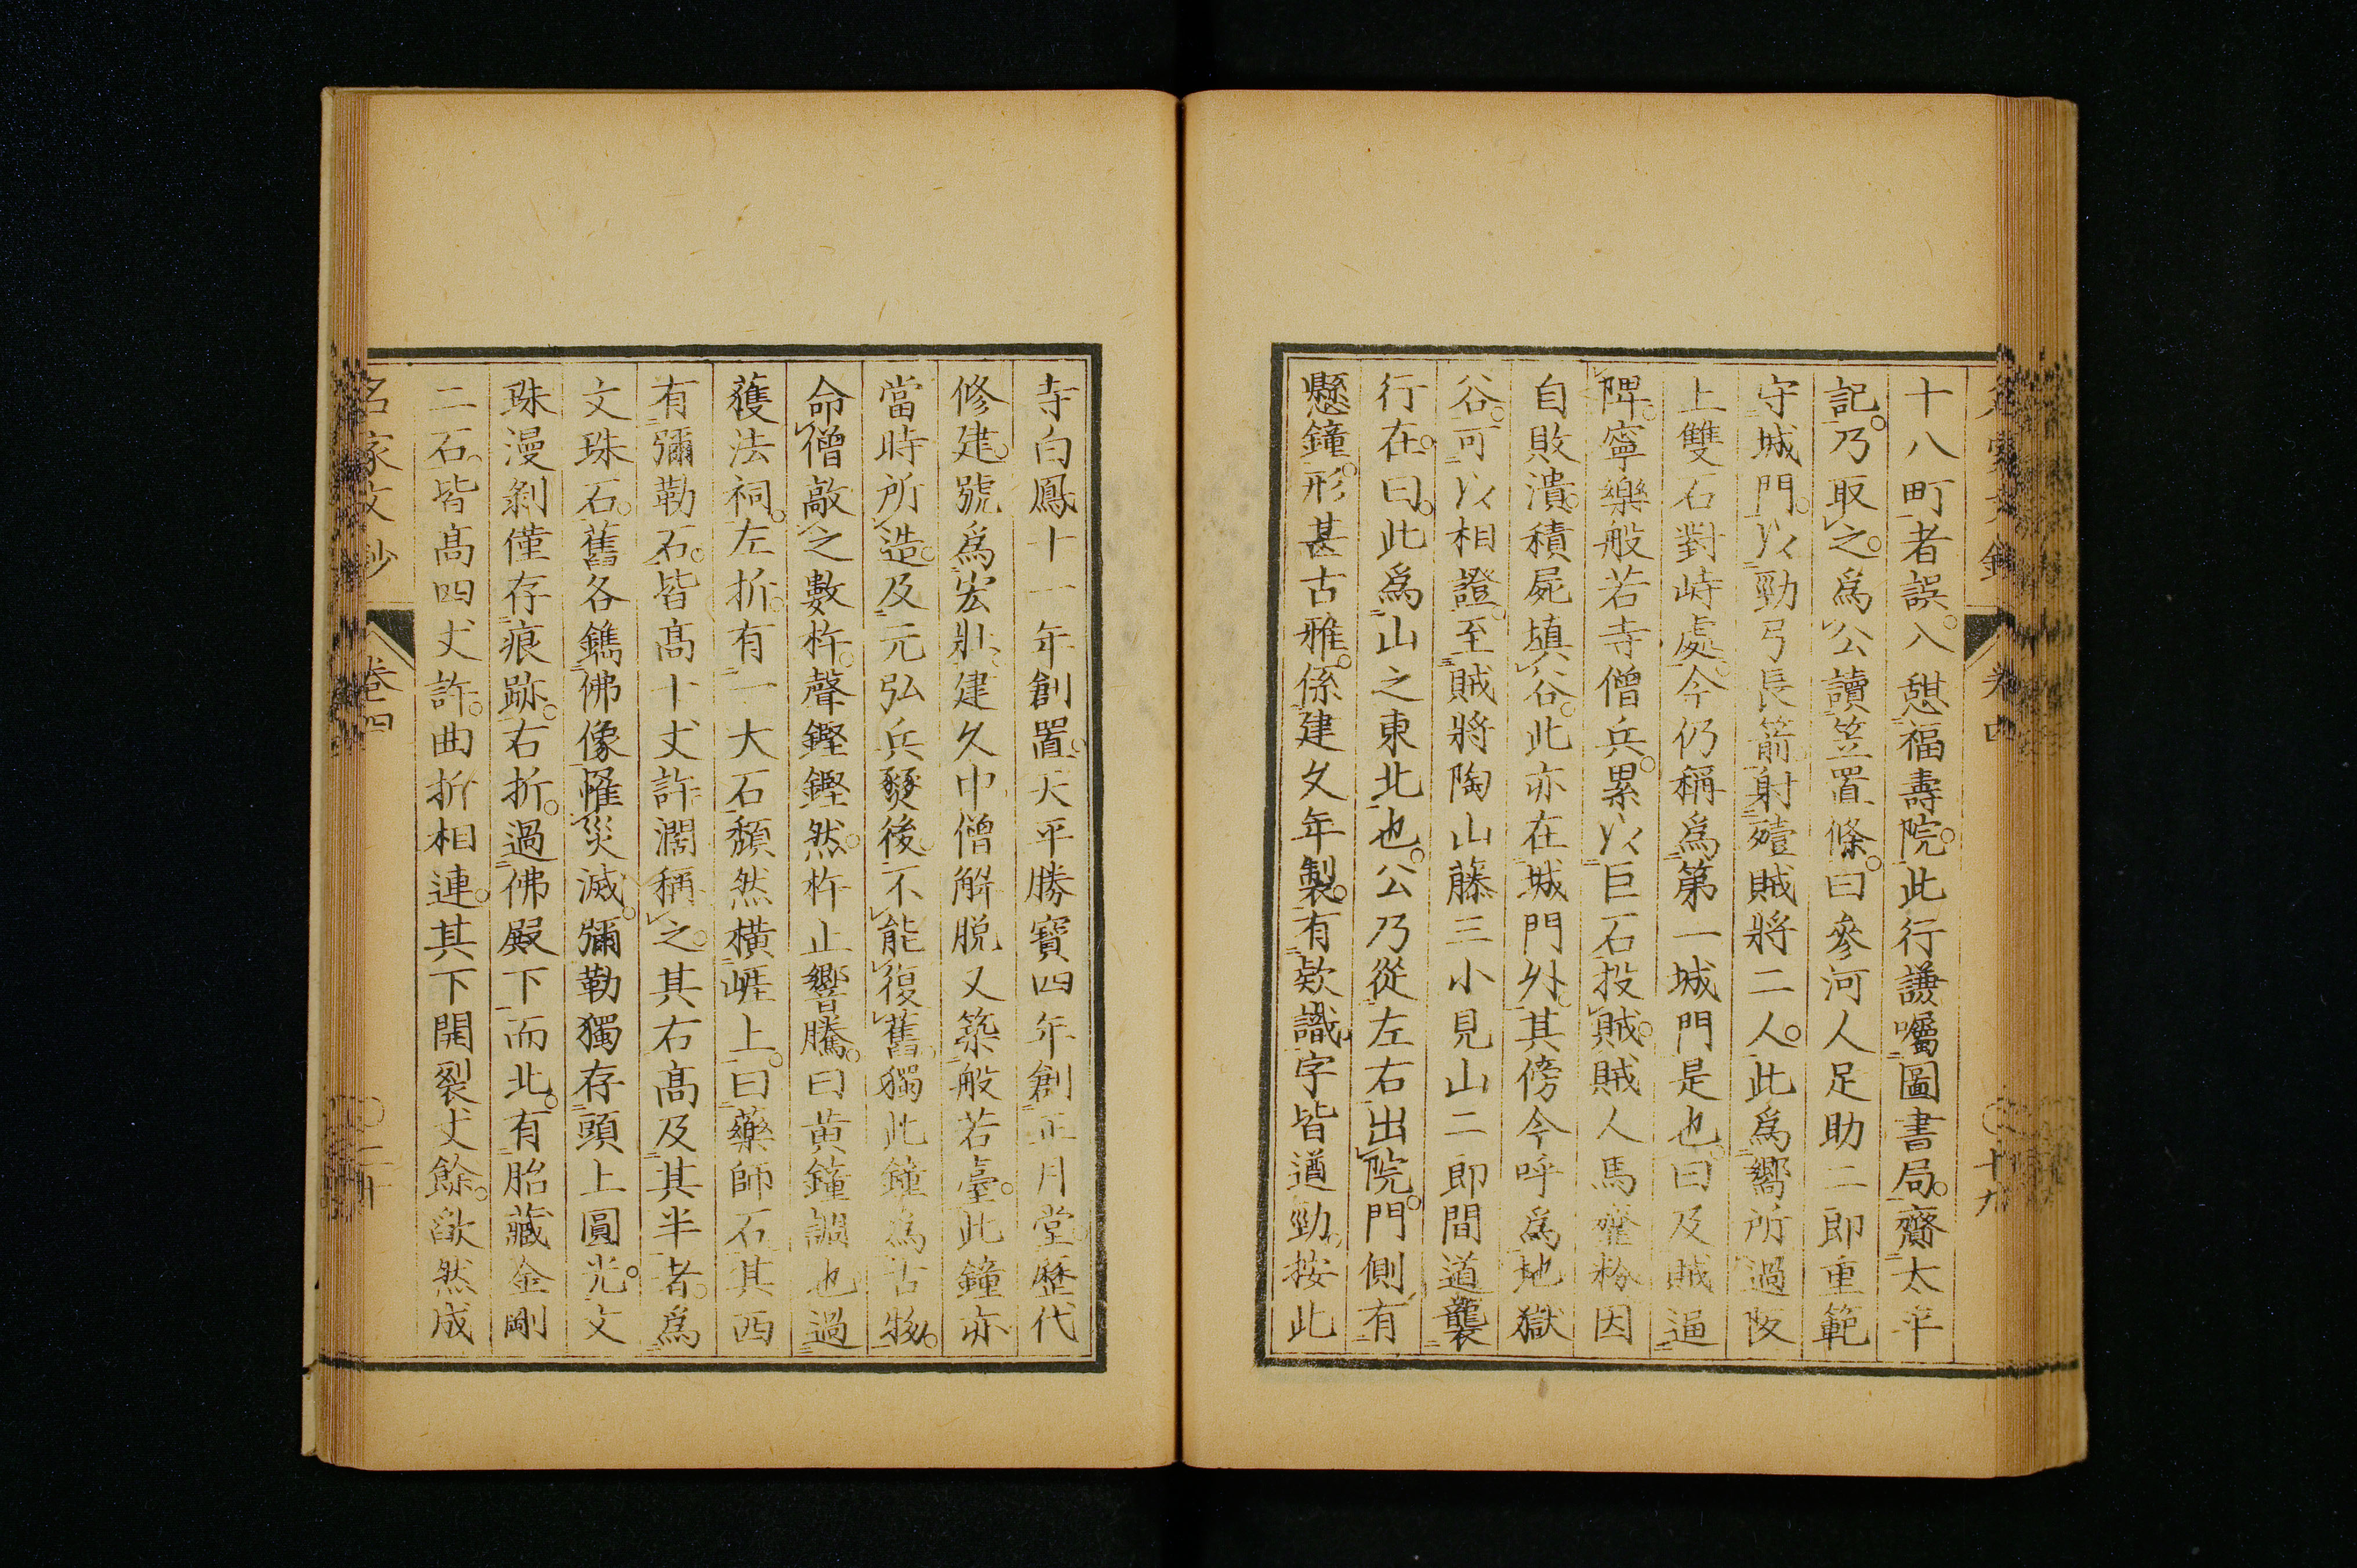 十八町者誤。入憩福壽院。此行謙囑圖書局。齎太平
記。乃取之。爲公讀笠置條。曰參河人足助二郎重範
守城門。以勁弓長箭射殪賊將二人。此爲嚮所過阪
上雙石對峙處。今仍稱爲第一城門是也。曰及賊逼
陴。寧樂般若寺僧兵。累以巨石投賊。賊人馬齏粉因
自敗潰。積屍填谷。此亦在城門外。其傍今呼爲地獄
谷。可以相證。至賊將陶山藤三小見山二郎間道襲
行在。曰。此爲山之東北也。公乃從左右出院。門側有
懸鐘。形甚古雅。係建久年製。有欵識字皆遒勁。按此
卷四
十九
寺白鳳十一年創置。天平勝寶四年創正月堂。歷代
修建。號爲宏壯。建久中僧解脱又築般若臺。此鐘亦
當時所造。及元弘兵燹後。不能復舊。獨此鐘爲古物。
命僧敲之數杵。聲鏗鏗然。杵止響騰。曰黄鐘調也過
蘿法祠。左折。有一大石頹然橫崕上。曰藥師石其西
有彌勒石。皆高十丈許濶稱之。其右高及其半者。爲
文珠石。舊各鐫佛像罹災滅。彌勒獨存頭上圓光。文
珠漫剝僅存痕跡。右折。過佛殿下而北。有胎藏金剛
二石。皆高四丈許。曲折相連。其下開裂丈餘。歘然成
名家文鈔
卷四